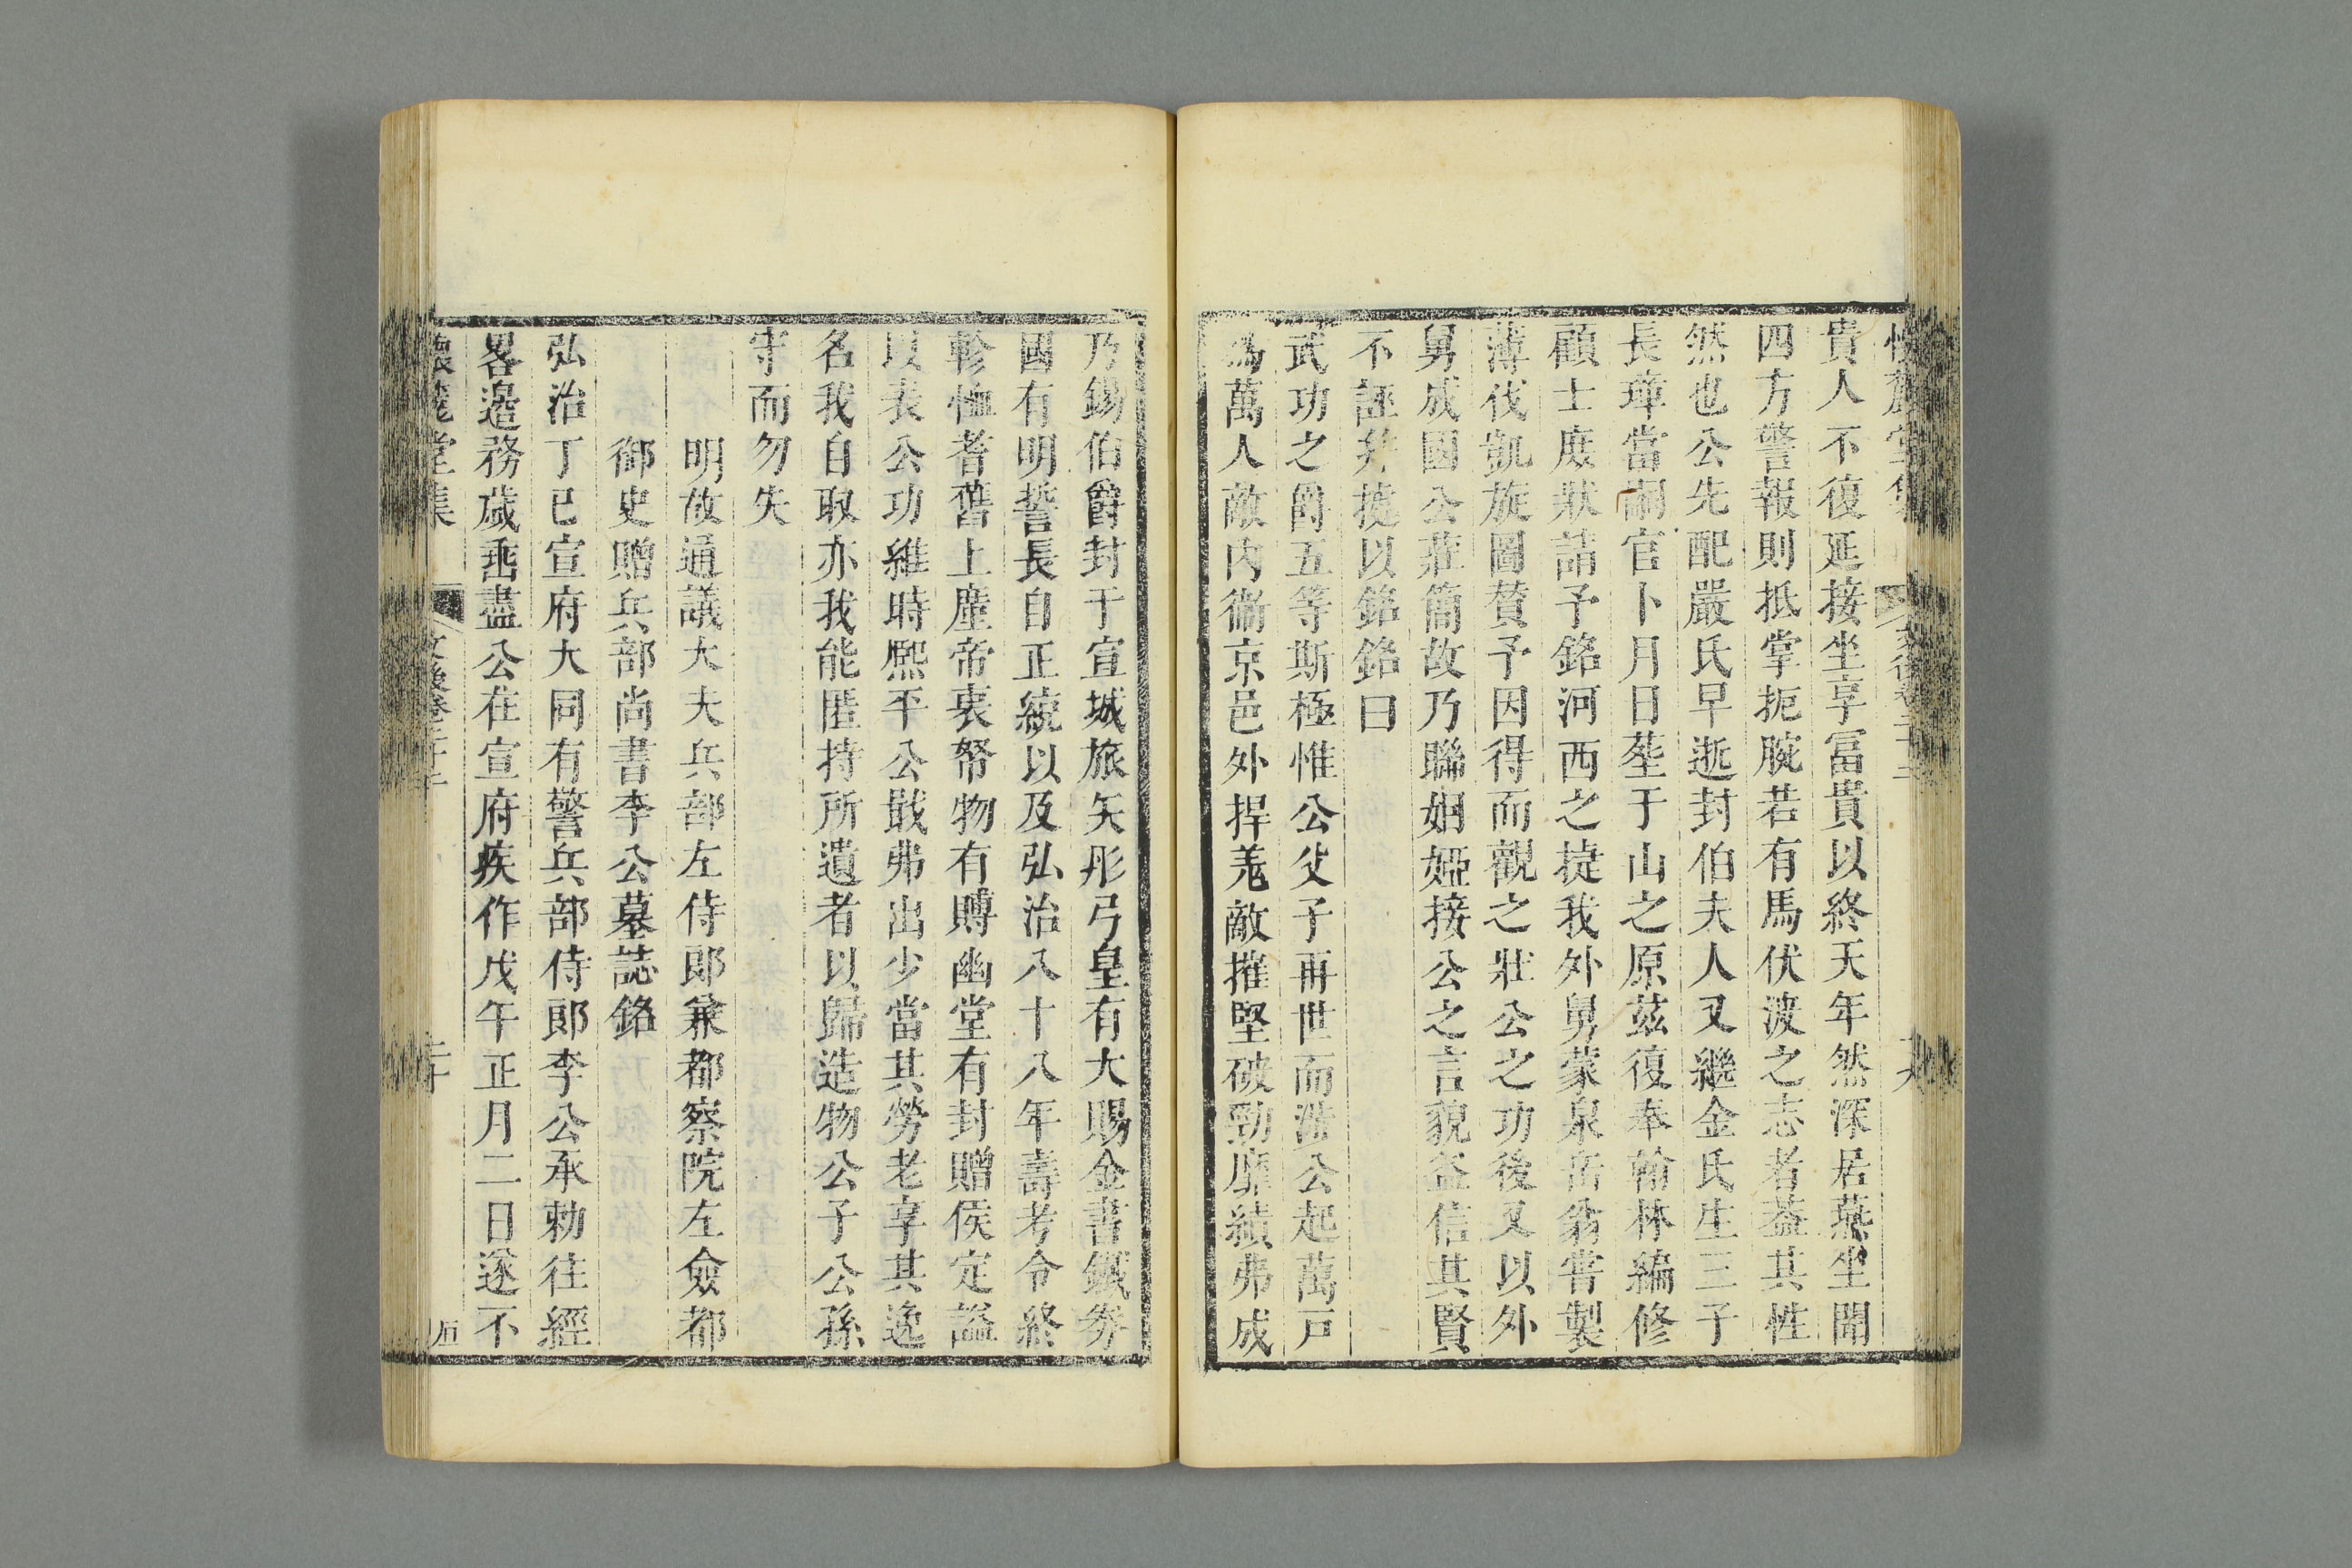 貴人不復延接坐享冨貴以終天年然深居燕坐聞
四方警報則抵掌扼腕若有馬伏波之志者葢其性
然也公先配嚴氏早逝封伯夫人又繼金氏生三子
長璋當嗣官卜月日塟于山之原茲復奉翰林編修
顧士㢘狀請予銘河西之捷我外舅蒙泉岳翁嘗製
薄伐凱旋圖贊予因得而觀之壯公之功後又以外
舅成國公莊簡故乃聯姻婭接公之言貌益信其賢
不誣并㨗以銘銘曰
武功之爵五等斯極惟公父子再世而涉公起萬戸
為萬人敵内衞京邑外捍羗敵摧堅破勁靡績弗成
乃錫伯爵封于宣城旅矢彤弓皇有大賜金書鐵券
國有明誓長自正統以及弘治八十八年壽考令終
軫恤耆舊上塵帝衷帑物有賻幽堂有封贈侯定謚
以表公功維時熙平公戢弗出少當其勞老享其逸
名我自取亦我能匿持所遺者以歸造物公子公孫
守而勿失
明故通議大夫兵部左侍郎兼都察院左僉都
御史贈兵部尚書李公墓誌銘
弘治丁巳宣府大同有警兵部侍郎李公承勅往經
畧邉務歳臿盡公在宣府疾作戊午正月二日遂不
懷麓堂集 文後卷二十五 二十